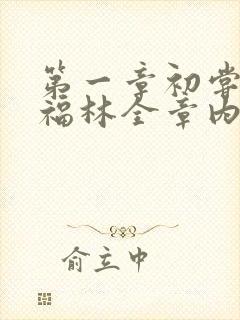 第一章初尝
福林全章内
俞立中